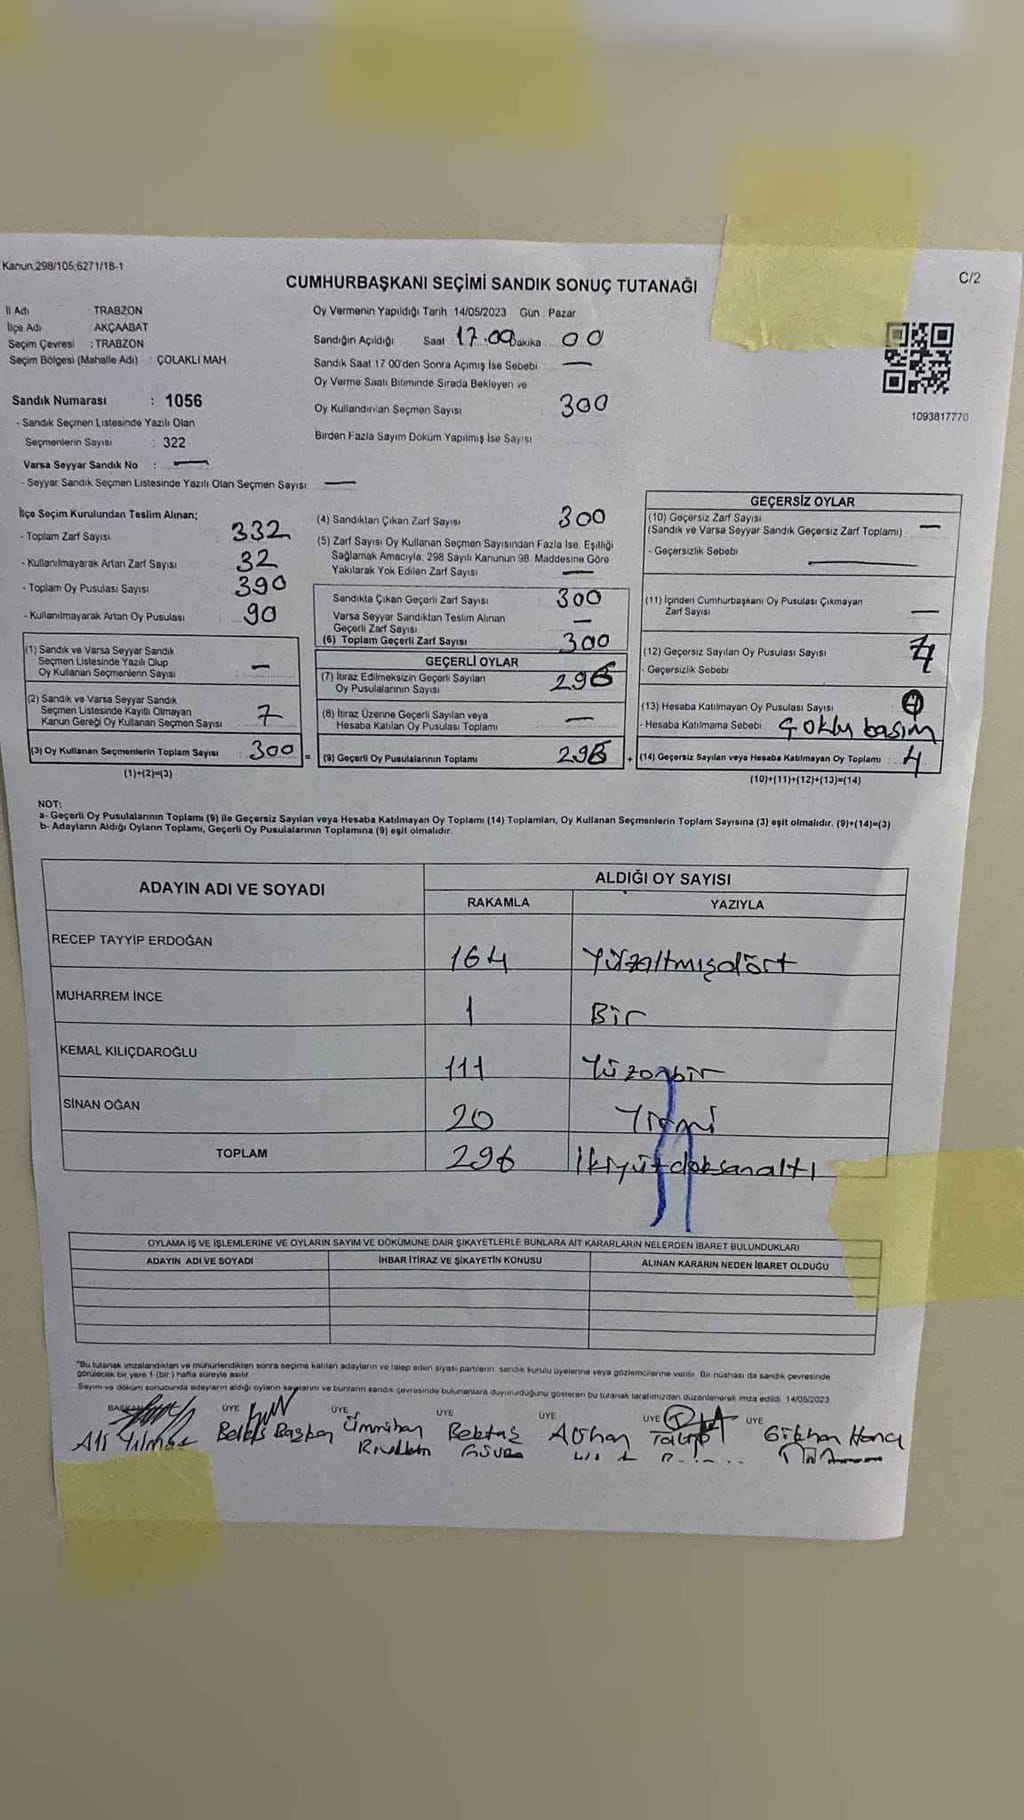 Kanun,298/105,6271/18-1
C/2
CUMHURBAŞKANI SEÇİMİ SANDIK SONUÇ TUTANAĞI
İl Adı TRABZON
İlçe Adı AKÇAABAT
Seçim Çevresi : TRABZON
Seçim Bölgesi (Mahalle Adı) : ÇOLAKLI MAH
Sandık Numarası : 1056
- Sandık Seçmen Listesinde Yazılı Olan
Seçmenlerin Sayısı : 322
Varsa Seyyar Sandık No : —
- Seyyar Sandık Seçmen Listesinde Yazılı Olan Seçmen Sayısı: —
Oy Vermenin Yapıldığı Tarih :14/05/2023 Gün : Pazar
Sandığın Açıldığı Saat 17:00 Dakika 00
Sandık Saat 17 00'den Sonra Açımış İse Sebebi : —
Oy Verme Saati Bitiminde Sırada Bekleyen ve
Oy Kullandırılan Seçmen Sayısı 300
Birden Fazla Sayım Döküm Yapılmış İse Sayısı
1093817770
İlçe Seçim Kurulundan Teslim Alınan;
- Toplam Zarf Sayısı 332
- Kullanılmayarak Artan Zarf Sayısı 32
- Toplam Oy Pusulası Sayısı 390
- Kullanılmayarak Artan Oy Pusulası 90
(1) Sandık ve Varsa Seyyar Sandık
Seçmen Listesinde Yazılı Olup
Oy Kullanan Seçmenlerin Sayısı : —
(2) Sandık ve Varsa Seyyar Sandık
Seçmen Listesinde Kayıtlı Olmayan
Kanun Gereği Oy Kullanan Seçmen Sayısı : 7
(3) Oy Kullanan Seçmenlerin Toplam Sayısı : 300 =
(1)+(2)=(3)
(4) Sandıktan Çıkan Zarf Sayısı 300
(5) Zarf Sayısı Oy Kullanan Seçmen Sayısından Fazla İse, Eşitliği
Sağlamak Amacıyla, 298 Sayılı Kanunun 98. Maddesine Göre
Yakılarak Yok Edilen Zarf Sayısı —
Sandıkta Çıkan Geçerli Zarf Sayısı 300
Varsa Seyyar Sandıktan Teslim Alınan
Geçerli Zarf Sayısı —
(6) Toplam Geçerli Zarf Sayısı 300
GEÇERLİ OYLAR
(7) İtiraz Edilmeksizin Geçerli Sayılan
Oy Pusulalarının Sayısı 296
(8) İtiraz Üzerine Geçerli Sayılan veya
Hesaba Katılan Oy Pusulalarının Toplamı —
(9) Geçerli Oy Pusulalarının Toplamı 296 +
GEÇERSİZ OYLAR
(10) Geçersiz Zarf Sayısı
(Sandık ve Varsa Seyyar Sandık Geçersiz Zarf Toplamı) : —
- Geçersizlik Sebebi —
(11) İçinden Cumhurbaşkanı Oy Pusulası Çıkmayan
Zarf Sayısı —
(12) Geçersiz Sayılan Oy Pusulası Sayısı
- Geçersizlik Sebebi
(13) Hesaba Katılmayan Oy Pusulası Sayısı 4
- Hesaba Katılmama Sebebi : Çoklu basım
(14) Geçersiz Sayılan veya Hesaba Katılmayan Oy Toplamı : 4
(10)+(11)+(12)+(13)=(14)
NOT:
a- Geçerli Oy Pusulalarının Toplamı (9) ile Geçersiz Sayılan veya Hesaba Katılmayan Oy Toplamı (14) Toplamları, Oy Kullanan Seçmenlerin Toplam Sayısına (3) eşit olmalıdır. (9)+(14)=(3)
b- Adayların Aldığı Oyların Toplamı, Geçerli Oy Pusulalarının Toplamına (9) eşit olmalıdır.
ADAYIN ADI VE SOYADI
ALDIĞI OY SAYISI
RAKAMLA YAZIYLA
RECEP TAYYİP ERDOĞAN 164 Yüzaltmışdört
MUHARREM İNCE 1 Bir
KEMAL KILIÇDAROĞLU 111 Yüzonbir
SİNAN OĞAN 20 Yirmi
TOPLAM 296 İkiyüzdoksanaltı
OYLAMA İŞ VE İŞLEMLERİNE VE OYLARIN SAYIM VE DÖKÜMÜNE DAİR ŞİKAYETLERLE BUNLARA AİT KARARLARIN NELERDEN İBARET BULUNDUKLARI
ADAYIN ADI VE SOYADI İHBAR İTİRAZ VE ŞİKAYETİN KONUSU ALINAN KARARIN NEDEN İBARET OLDUĞU
"Bu tutanak imzalandıktan ve mühürlendikten sonra seçime katılan adayların ve talep eden siyasi partilerin sandık kurulu üyelerine veya gözlemcilerine verilir. Bir nüshası da sandık çevresinde
görülecek bir yere 1 (bir) hafta süreyle asılır.
Sayım ve döküm sonucunda adayların aldığı oyların sayılarını ve bunların sandık çevresinde bulunanlara duyurulduğunu gösteren bu tutanak tarafımızdan düzenlenerek imza edildi 14/05/2023
BAŞKAN ÜYE ÜYE ÜYE ÜYE ÜYE ÜYE
Ali Yılmaz Ümmihan Bektaş Gökhan